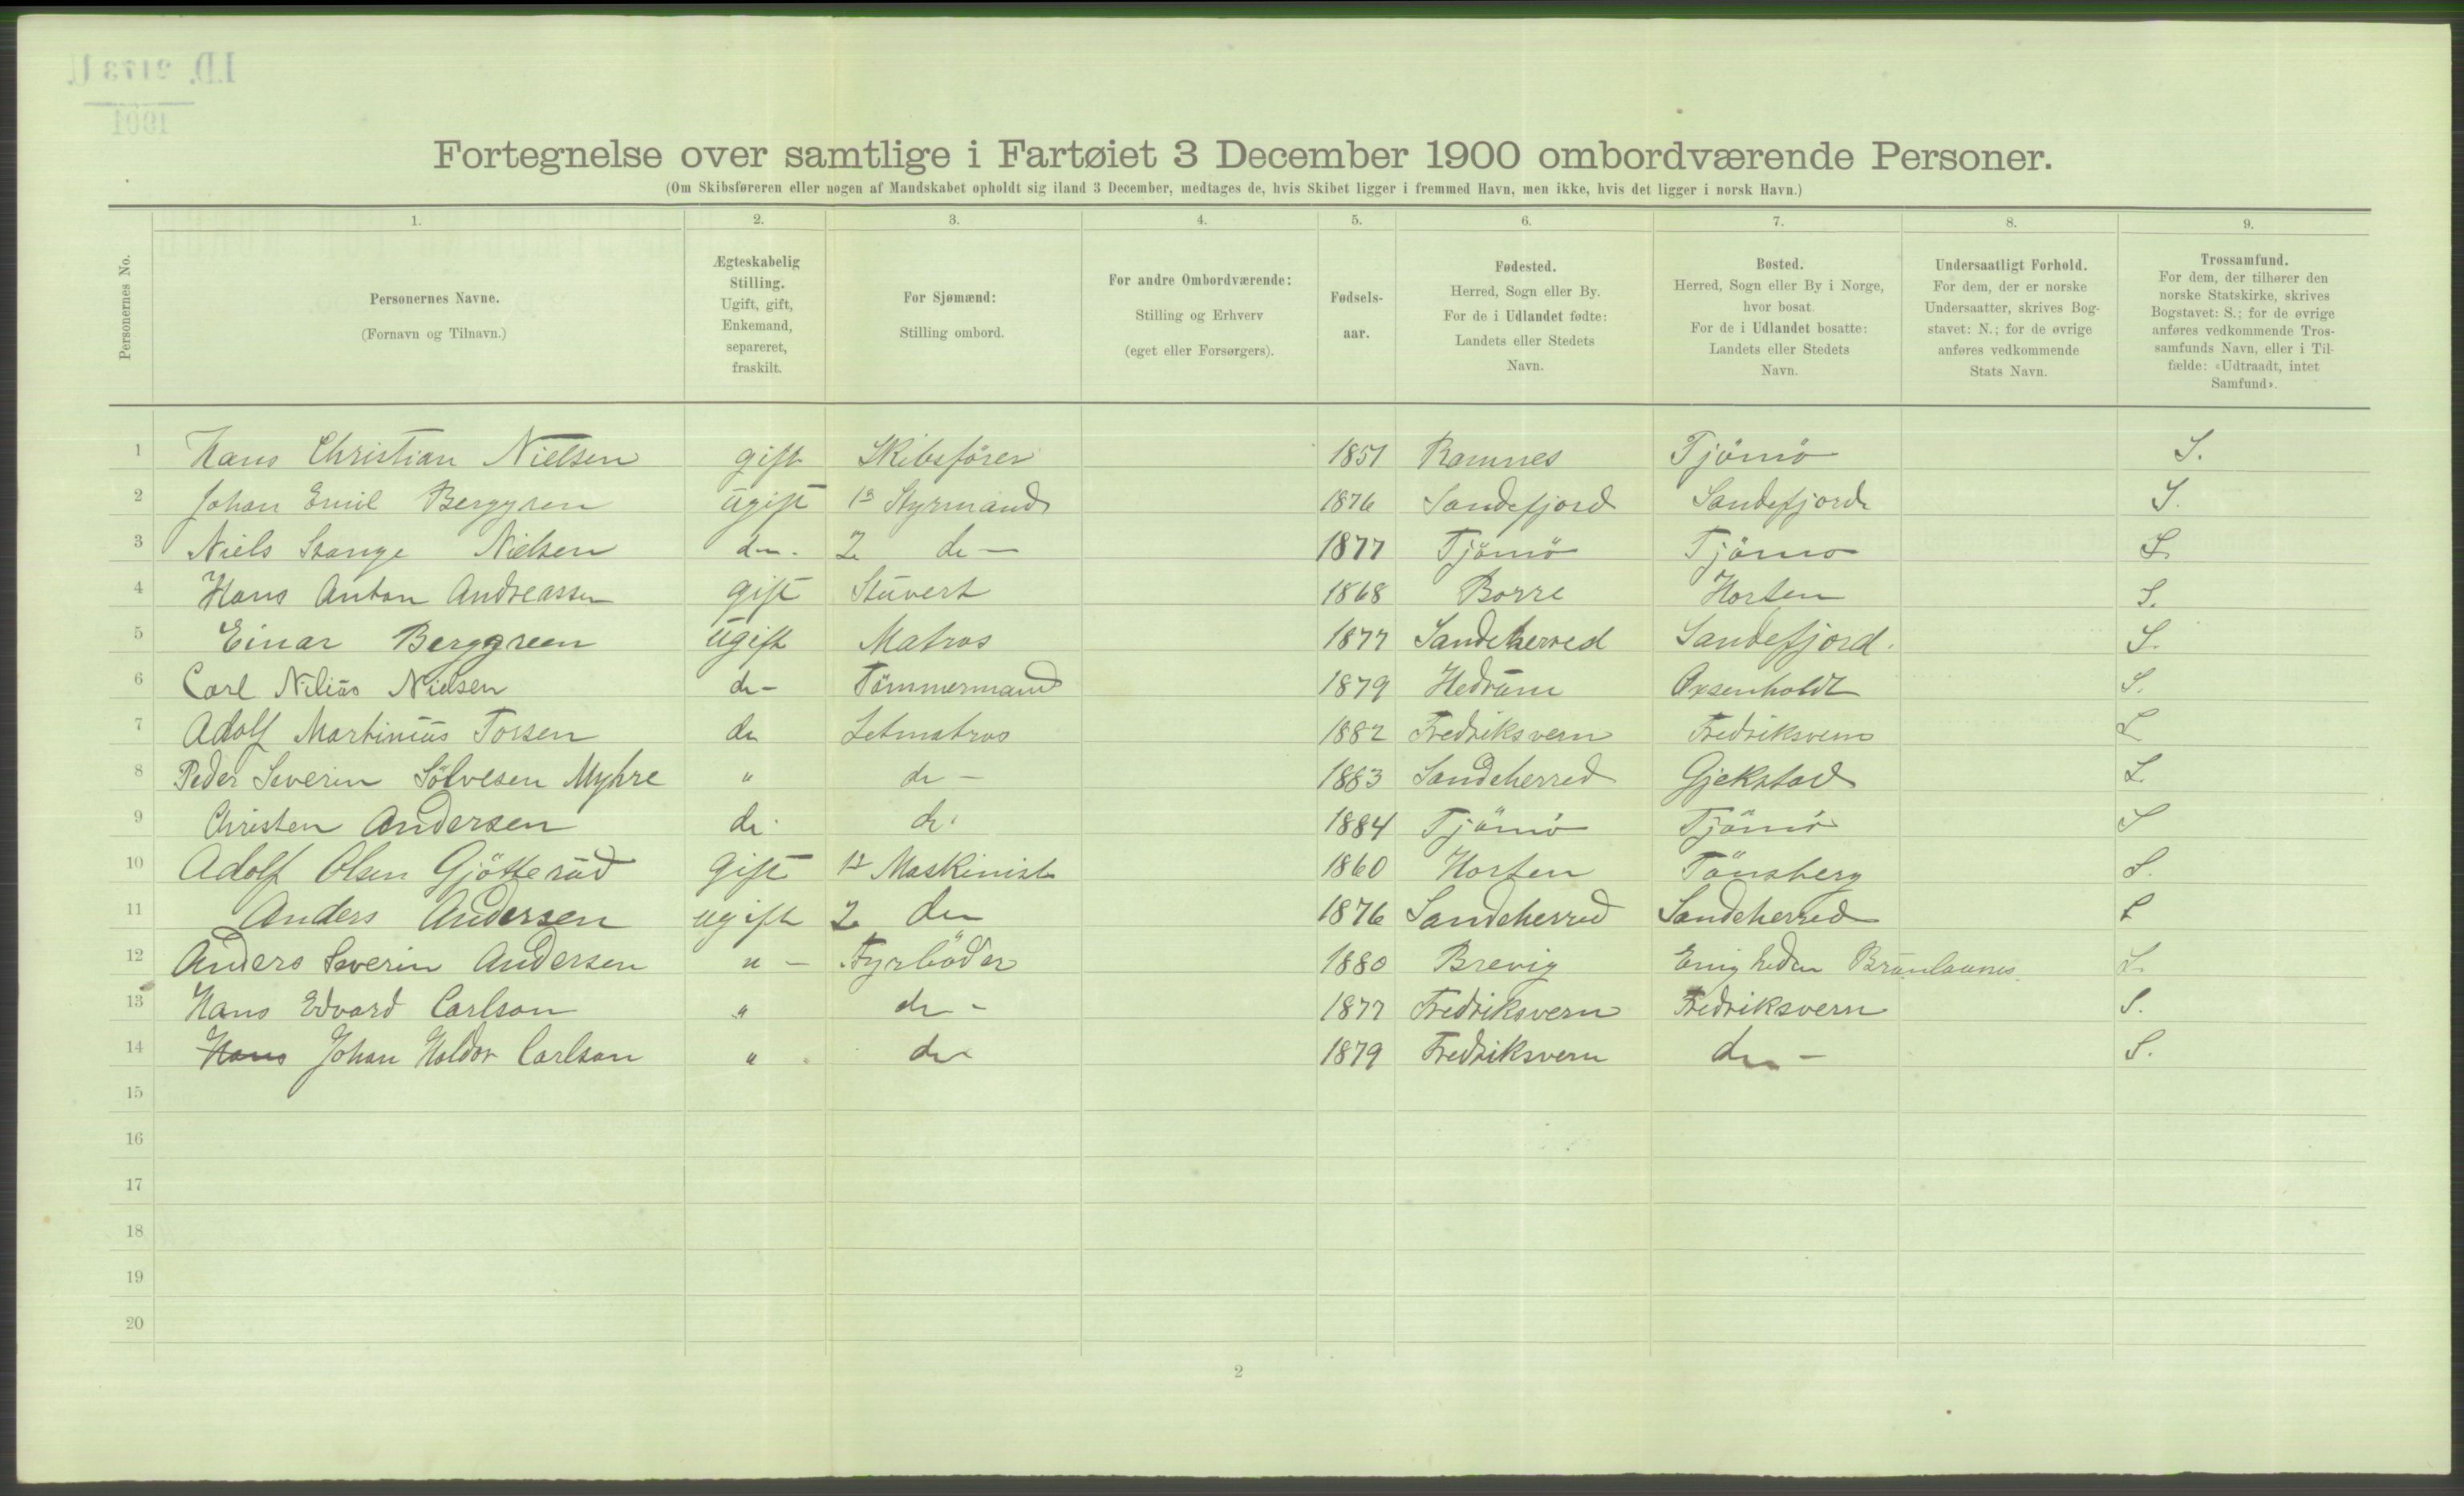 I.D. 2173 U.
1901
Fortegnelse over samtlige i Fartøiet 3 December 1900 ombordværende Personer.
(Om Skibsføreren eller nogen af Mandskabet opholdt sig iland 3 December, medtages de, hvis Skibet ligger i fremmed Havn, men ikke, hvis det ligger i norsk Havn.)
Personernes No.
1. 2. 3. 4. 5. 6. 7. 8. 9.
Personernes Navne.
(Fornavn og Tilnavn.)
Ægteskabelig
Stilling.
Ugift, gift,
Enkemand,
separeret,
fraskilt.
For Sjømænd:
Stilling ombord.
For andre Ombordværende:
Stilling og Erhverv
(eget eller Forsørgers).
Fødsels-
aar.
Fødested.
Herred, Sogn eller By.
For de i Udlandet fødte:
Landets eller Stedets
Navn.
Bosted.
Herred, Sogn eller By i Norge,
hvor bosat.
For de i Udlandet bosatte:
Landets eller Stedets
Navn.
Undersaatligt Forhold.
For dem, der er norske
Undersaatter, skrives Bog-
stavet: N.; for de øvrige
anføres vedkommende
Stats Navn.
Trossamfund.
For dem, der tilhører den
norske Statskirke, skrives
Bogstavet: S.; for de øvrige
anføres vedkommende Tros-
samfunds Navn, eller i Til-
fælde: «Udtraadt, intet
Samfund».
1 Hans Christian Nielsen gift Skibsfører 1851 Ramnes Tjömö S.
2 Johan Emil Berggren ugift 1ste Styrmand 1876 Sandefjord Sandefjord S.
3 Niels Stange Nielsen do. 2 do — 1877 Tjömö Tjömö S.
4 Hans Anton Andreassen gift Stuvert 1868 Borre Horten S.
5 Einar Berggreen ugift Matros 1877 Sandeherred Sandefjord. S.
6 Carl Nilius Nielsen do - Tömmermand 1879 Hedrum Oxenholdt S.
7 Adolf Martinius Torsen do Letmatros 1882 Fredriksvern Fredriksvern S
8 Peder Severin Sölvesen Myhre " do - 1883 Sandeherred Gjekstad S
9 Christen Andersen do. do. 1884 Tjömö Tjömö S
10 Adolf Olsen Gjötterud Gift 1st Maskinist 1860 Horten Tönsberg S.
11 Anders Andersen ugift 2 do 1876 Sandeherred Sandeherred S
12 Anders Severin Andersen " - Fyrböder 1880 Brevig Brunlaunes S.
13 Hans Edvard Carlson " do - 1877 Fredriksvern Fredriksvern S.
14 Hans Johan Haldor Carlson " do 1879 Fredriksvern do - S.
15
16
17
18
19
20
2